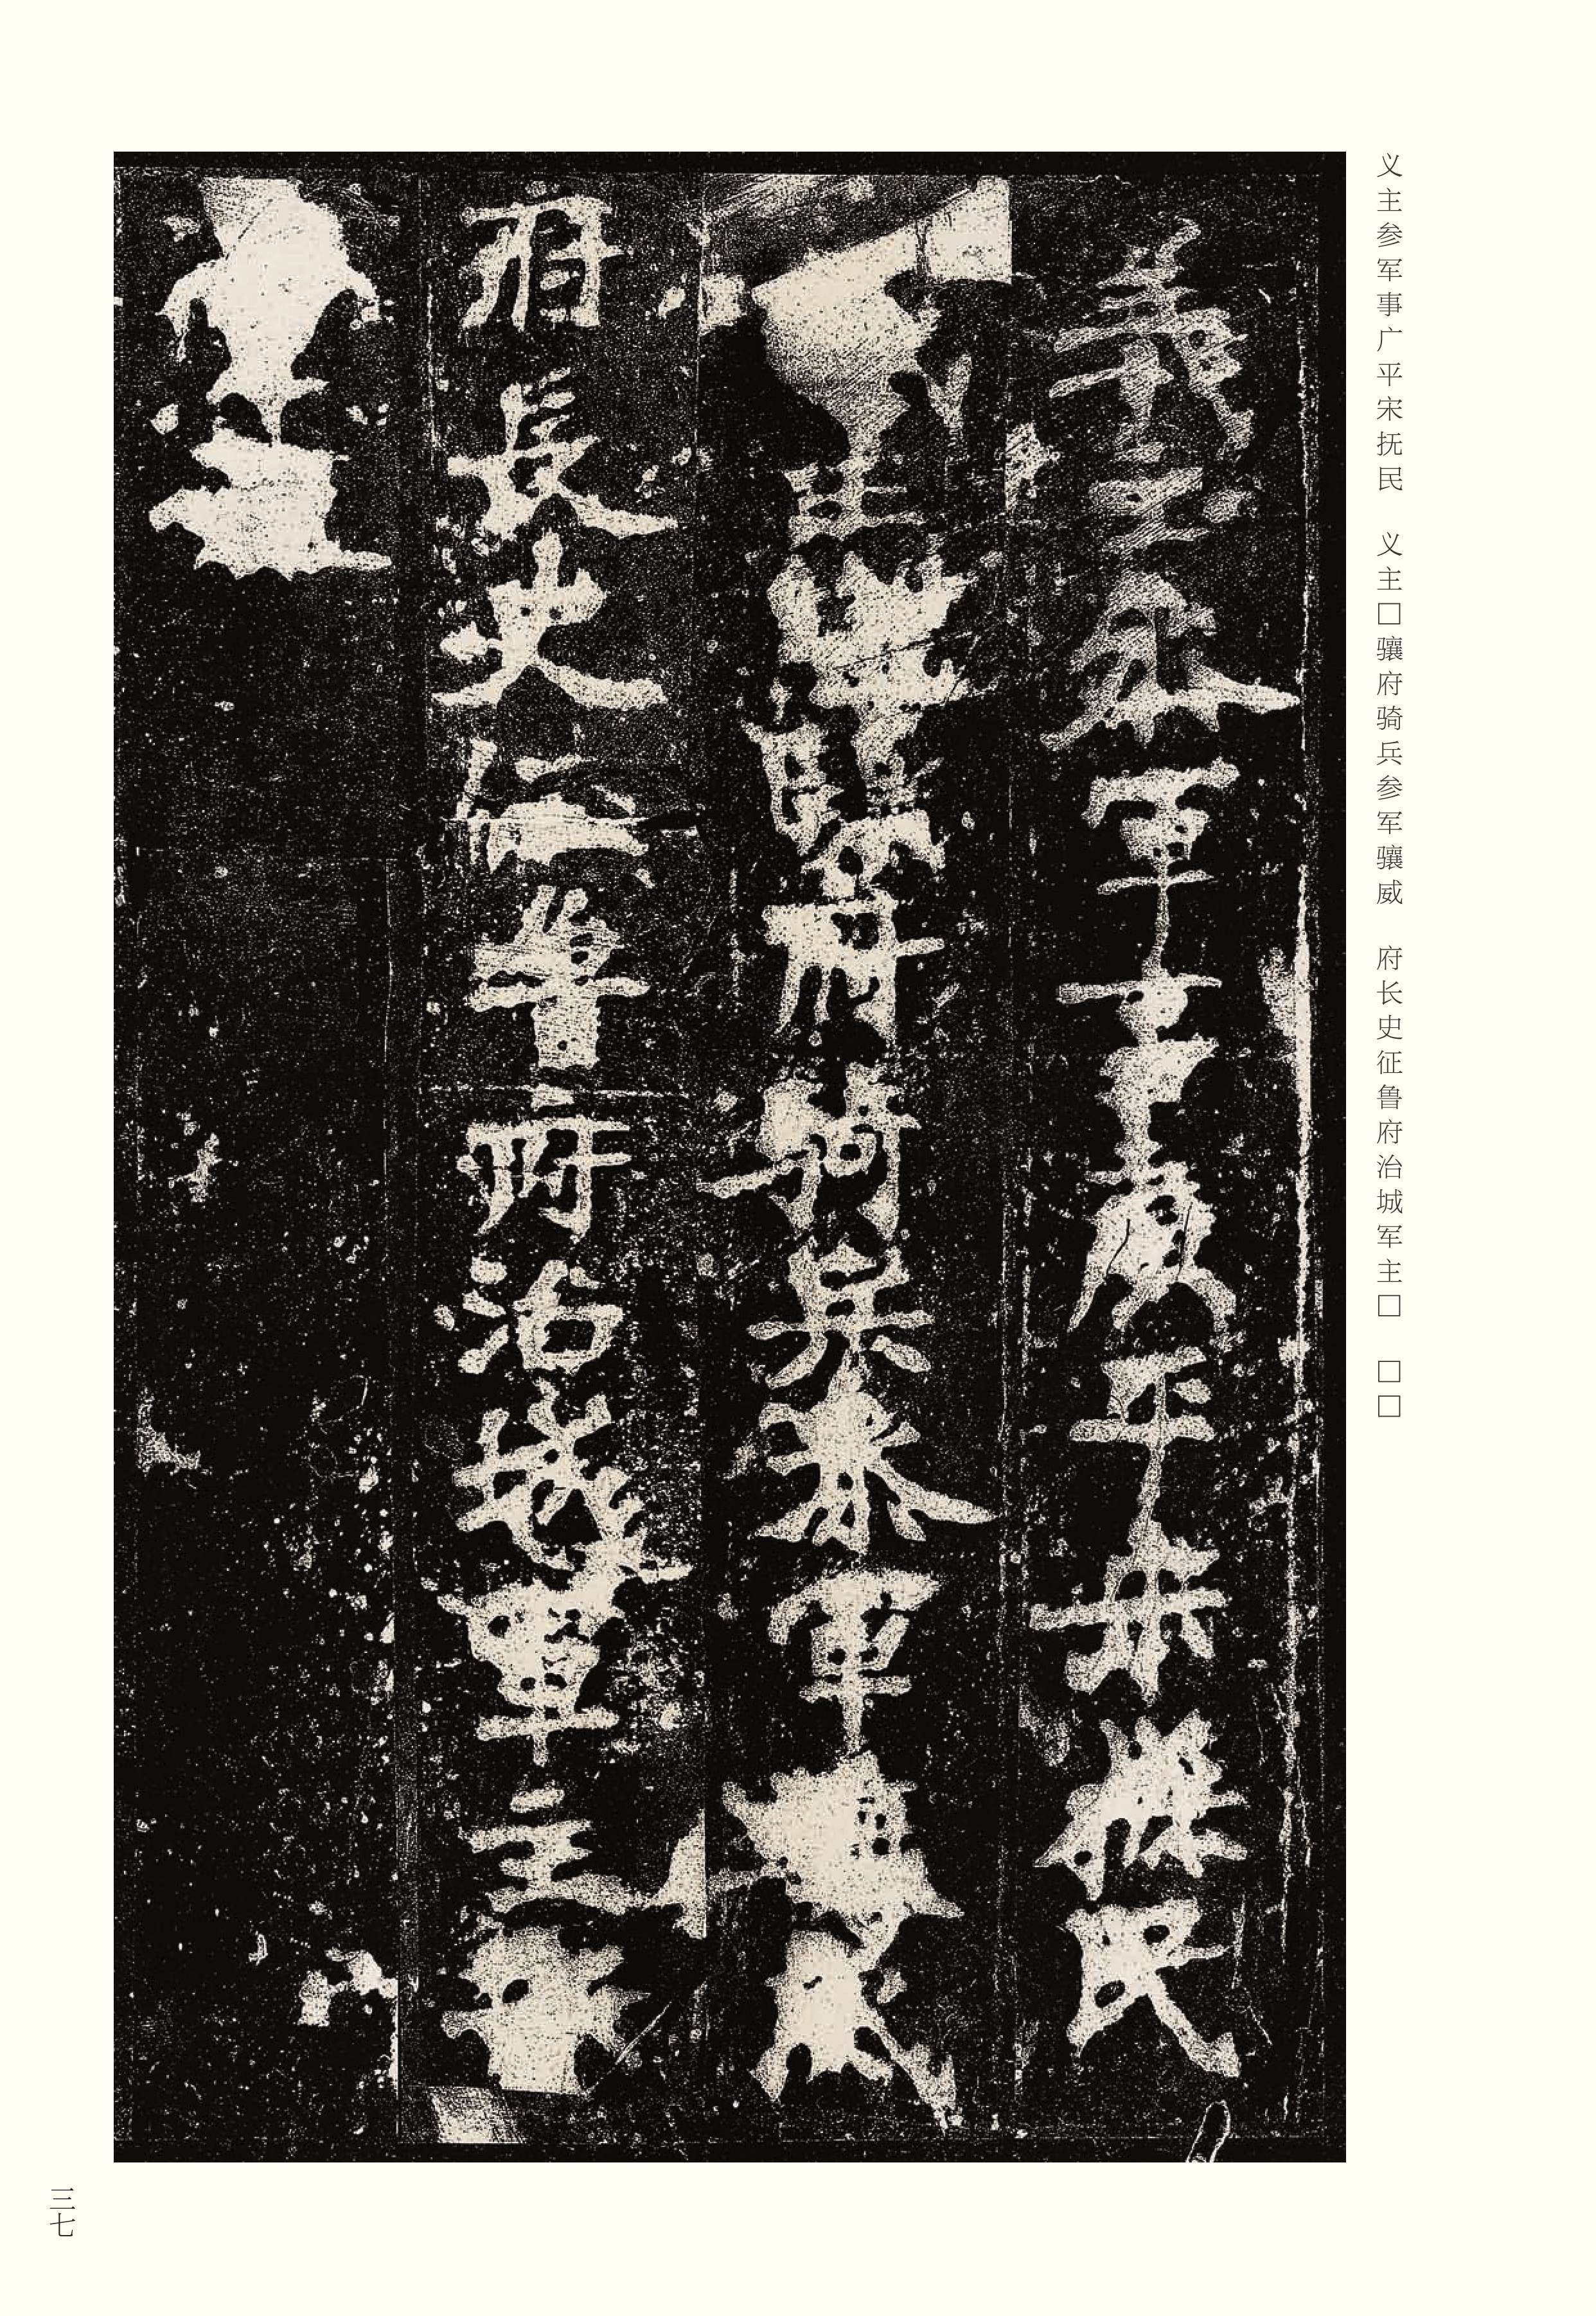 义主参军事广平宋抚民　义主□骧府骑兵参军骧威　府长史征鲁府治城军主□　□□
義主參軍事廣平宋撫民
主 府騎兵參軍
府長史征魯府治城軍主
三七